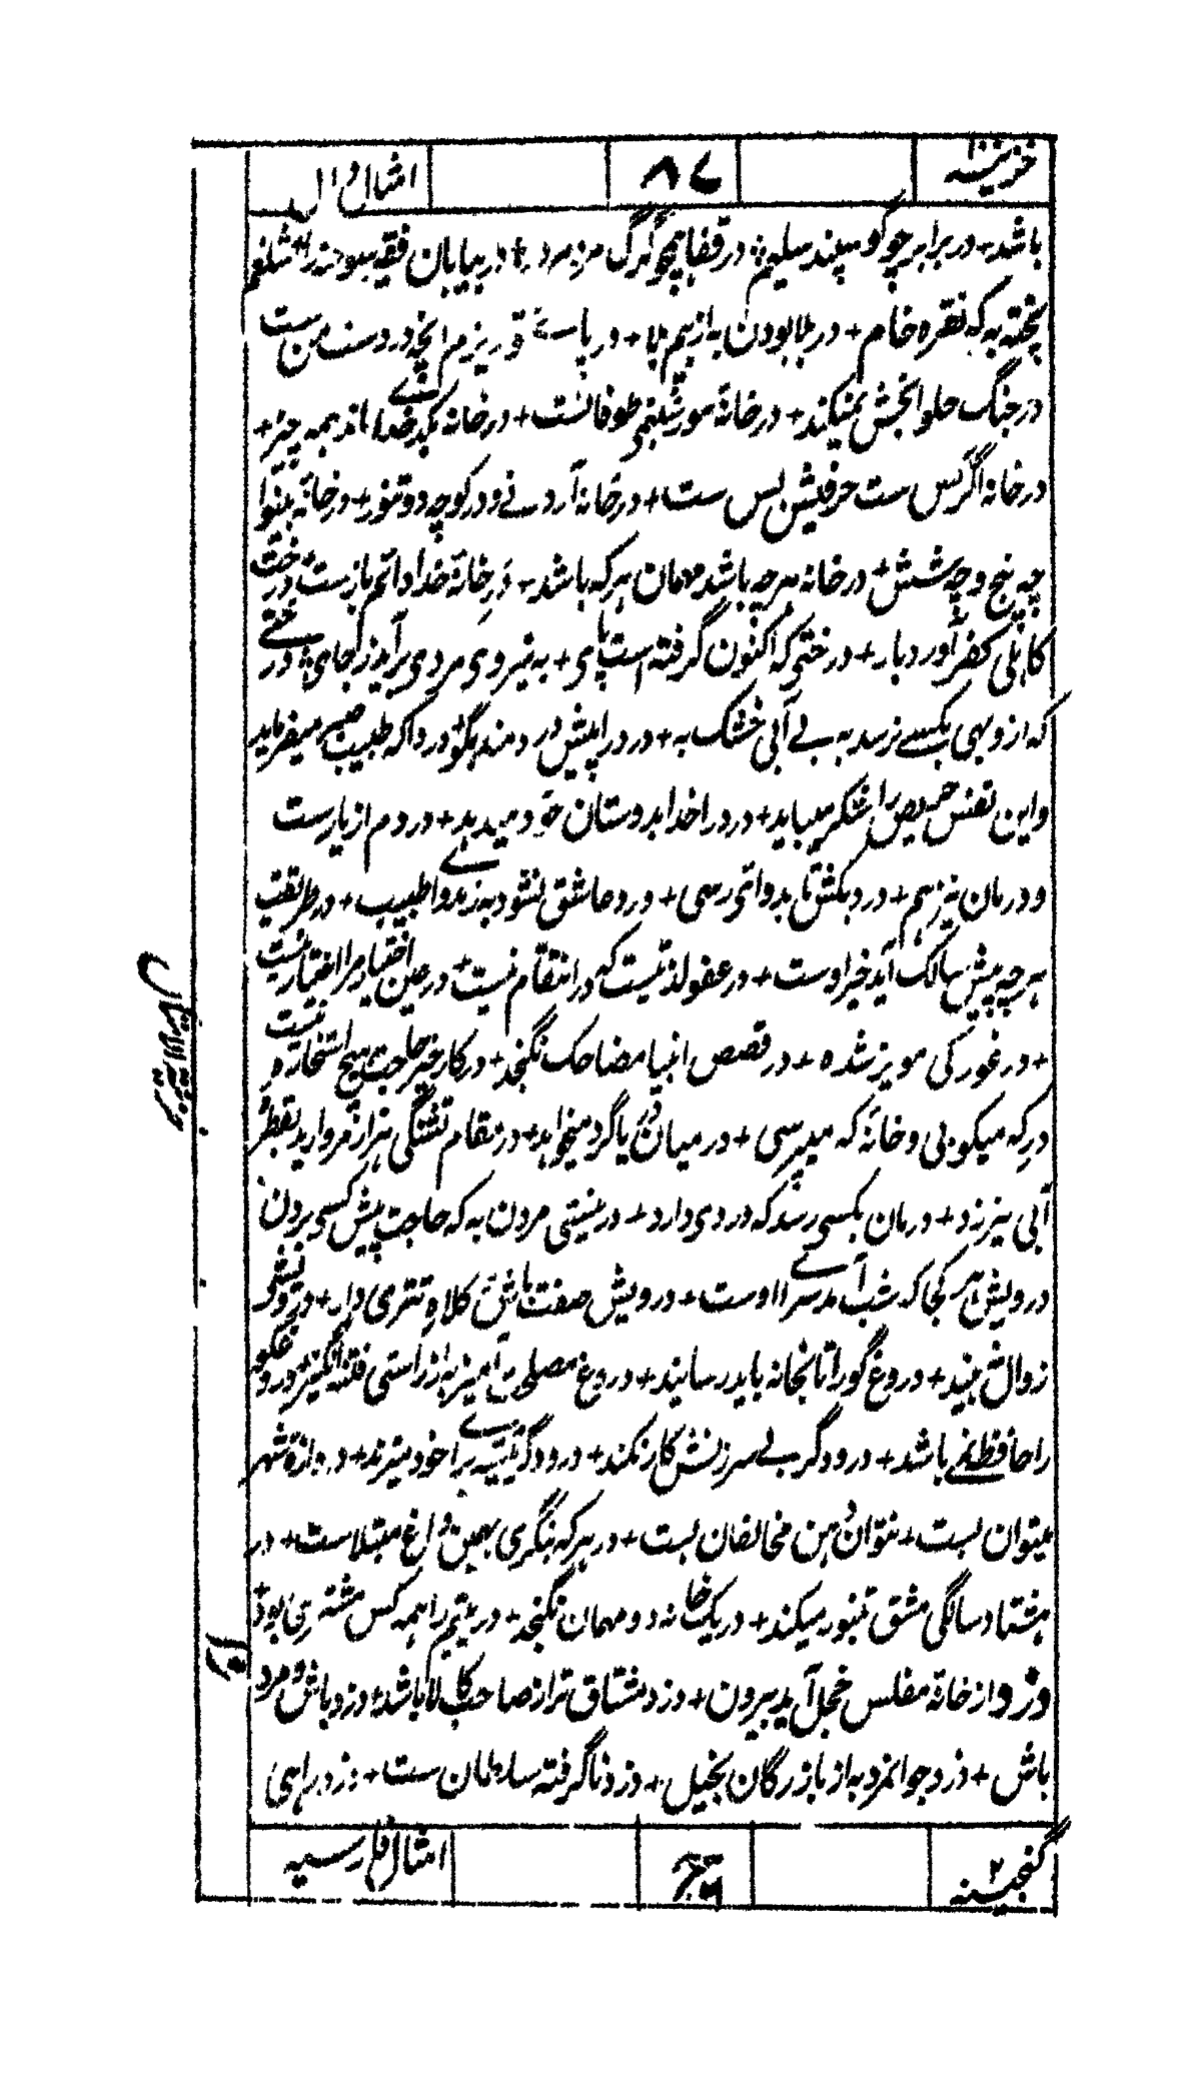 خزینہ ۸۷ امثال و ال
باشد+ در برابر چو گوسپند سلیم؛ در قفا ہمچو گرگ مردم در+ در بیابان فقیر سوختہ را شلغم
پختہ بہ کہ نقرہ خام+ در بلا بودن بہ از بیم بلا+ در پاے تو ریزم انچہ در دست من ست
در جنگ حلوا بخش نمیکنند+ در خانۂ مور شبنمے طوفانست+ در خانہ کدخدا ماند ہمہ چیز+
در خانہ اگر کس ست حرفیش بس ست+ در خانہ آرد نے و در کوچہ دو تنور+ در خانۂ بینوا
چہ پنج و چہ شش+ در خانہ ہر چہ باشد مہمان ہر کہ باشد+ درِ خانۂ خدا دائم باز ست+ درخت
کاہلی کفر آورد بار+ درختی کہ اکنون گرفتہ است پای+ بہ نیروی مردی برآید ز جای؛ درختے
کہ ازو بہی بکسے نرسد بہ بے آبی خشک بہ+ درد را پیش دردمند بگو+ دردا کہ طبیب صبر میفرماید
و این نفس حریص را شکر میباید+ درد را خدا بدوستان خود میدہد+ دردم از یار ست
و درمان نیز ہم+ درد بکش تا بدوائی رسی+ درد عاشق نشود بہ ز مداوای طبیب+ در طریقت
ہر چہ پیش سالک آید خیر اوست+ در عفو لذتیست کہ در انتقام نیست+ در عین اختیار مرا اختیار نیست
+ در غورگی مویز شدہ+ در قصص انبیا مضاحک نگنجد+ در کار خیر حاجت ہیچ استخارہ نیست
درِ کہ میکوبی و خانۂ کہ میپرسی+ در میان یا گرد میخواہد+ در مقام تشنگی ہزار مروارید بقطرۂ
آبی نیرزد+ درمان بکسی رسد کہ دردی دارد+ در نیستی مردن بہ کہ حاجت پیش کسی بردن
درویش ہر کجا کہ شب آید سرای اوست+ درویش صفت باش کلاہ تتری دار+ دروغش
زوال بیند+ دروغ گو را تا بخانہ باید رسانید+ دروغ مصلحت آمیز بہ از راستی فتنہ انگیز+ دروغگو
را حافظہ نمے باشد+ درودگر بے سرزنش کار نکند+ درودگر تیشہ برای خود میزند+ دروازۂ شہر
میتوان بست+ نتوان دہن مخالفان بست+ در ہر کہ بنگری بہمین داغ مبتلاست+ در
ہشتاد سالگی مشق تنبور میکند+ در یک خانہ دو مہمان نگنجد+ در یتیم را ہمہ کس مشتری بود+
دزد از خانۂ مفلس خجل آید بیرون+ دزد مشتاق تر از صاحب کالا باشد+ دزد باش و مرد
باش+ دزد جوانمرد بہ از بازرگان بخیل+ دزد ناگرفتہ سلطان ست+ دزد راہی
گنجینہ ۲ امثال فارسیہ